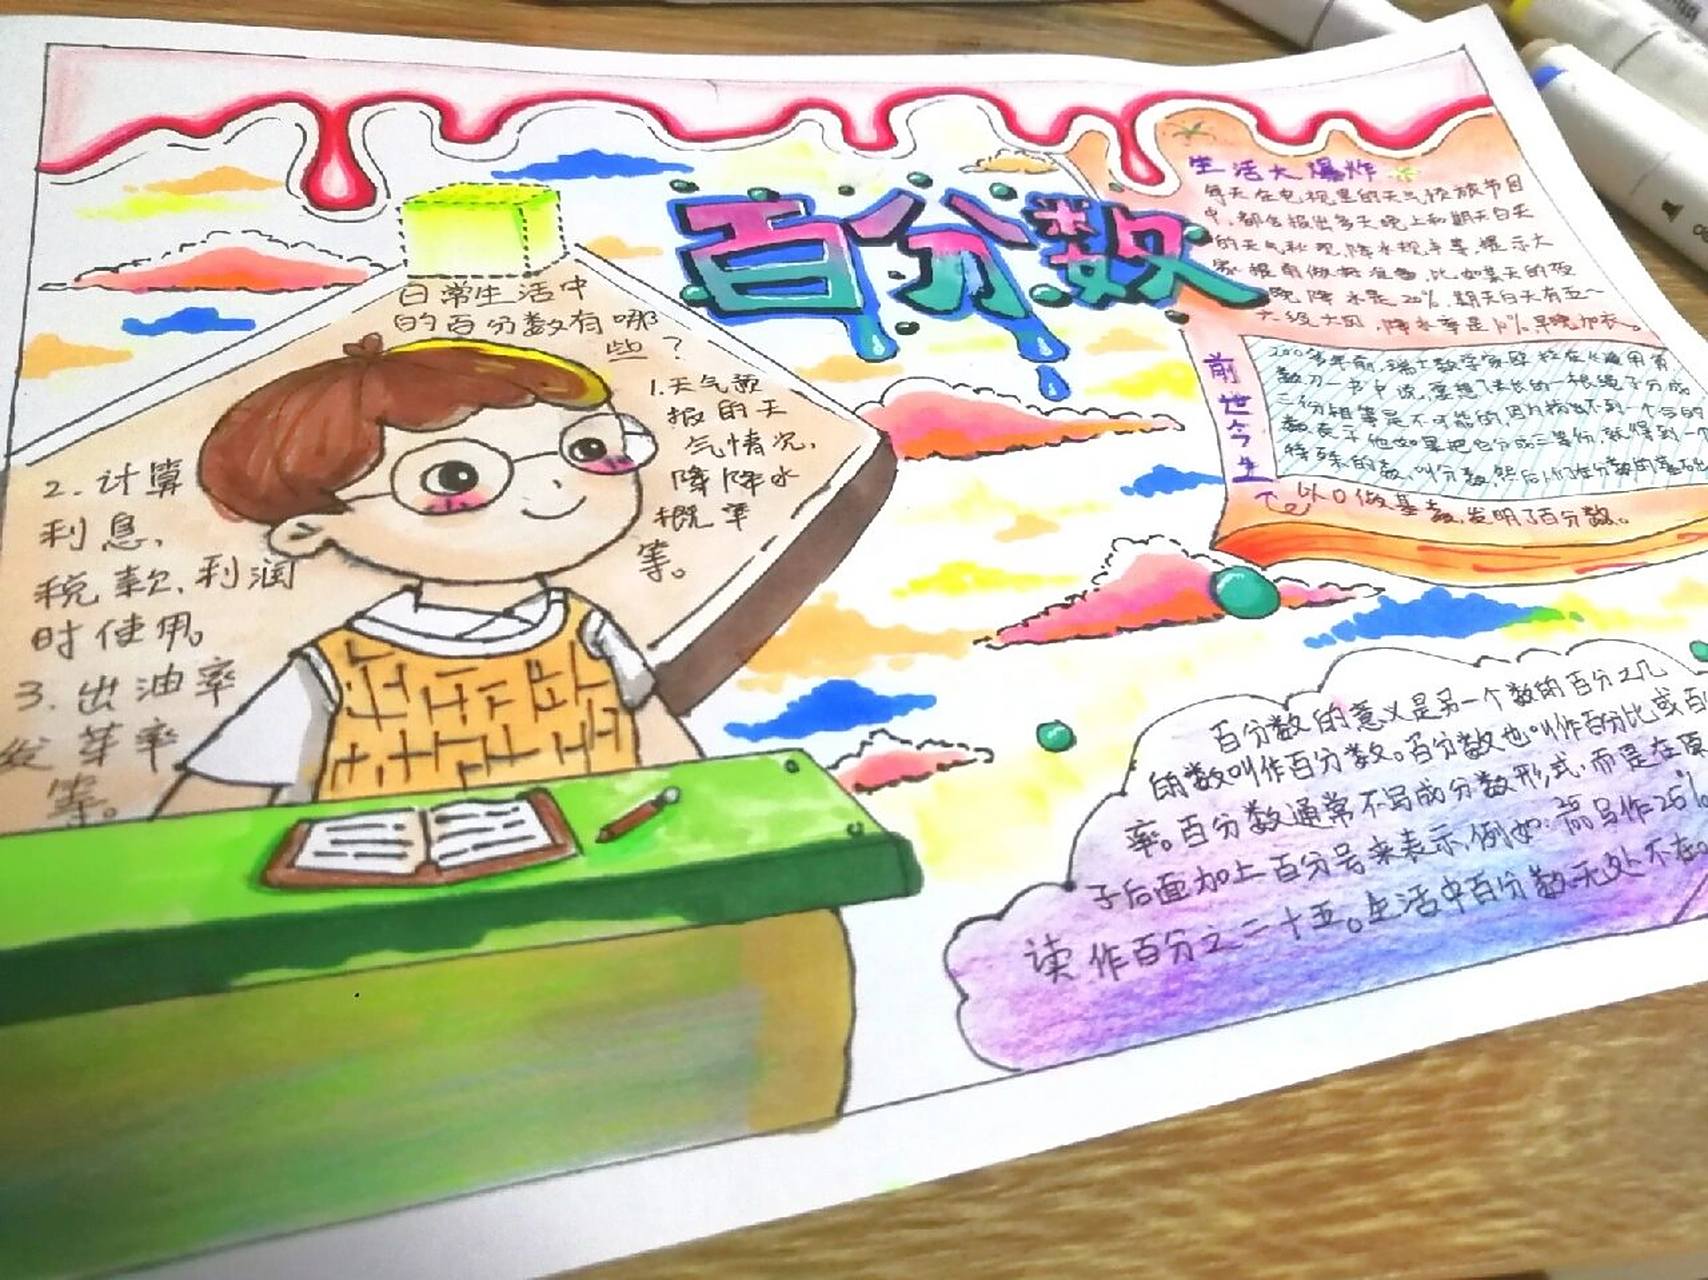 百分数
日常生活中
的百分数有哪
些？
1.天气预
报的天
气情况，
降降水
概率
等。
2.计算
利息，
税款、利润
时使用。
3.出油率
发芽率
等。
生活大爆炸
每天在电视里的天气预报节目
中，都会报出当天晚上和明天白天
的天气状况，降水概率等，提示大
家提前做好准备，比如某天的夜
晚降水是20%，明天白天有五~
六级大风，降水率是10%，早晚加衣。
前世今生
200多年前，瑞士数学家欧拉在《通用算
数》一书中说，要想7米长的一根绳子分成
三份相等是不可能的，因为找不到一个合的
数表示他如果把它分成三等份，就得到一个
特殊的数，叫分数，然后人们在分数的基础
以〇做基数，发明了百分数。
百分数的意义是另一个数的百分之几
的数叫作百分数。百分数也叫作百分比或百
率。百分数通常不写成分数形式，而是在原
子后面加上百分号来表示，例如：写作25%
读作百分之二十五。生活中百分数无处不在。